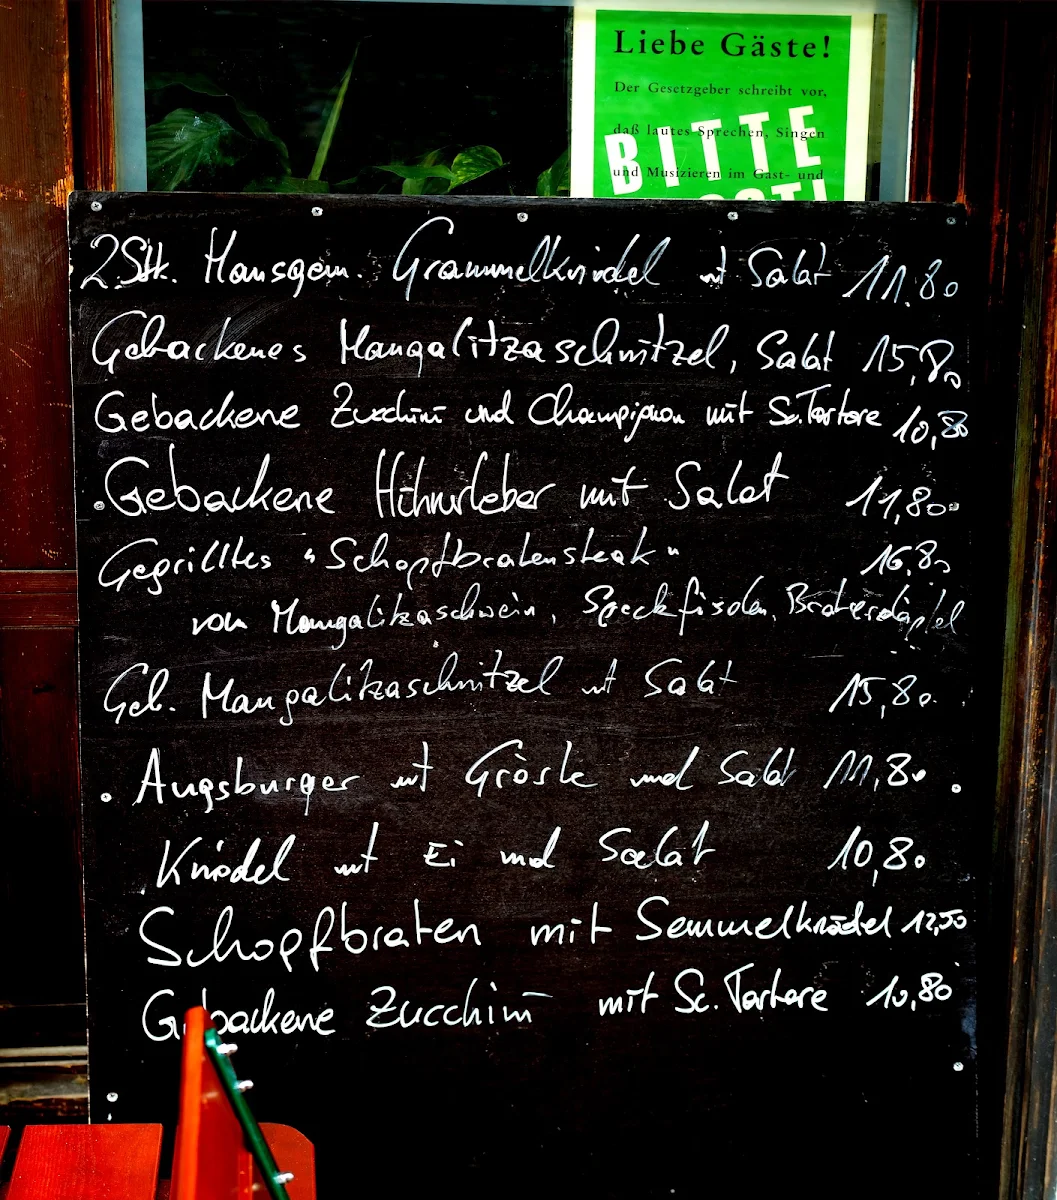 Liebe Gäste!
Der Gesetzgeber schreibt vor,
daß lautes Sprechen, Singen
BITTE
und Musizieren im Gast- und
2 Stk. Hausgem. Grammelknödel mt Salat 11.80
Gebackenes Mangalitzaschnitzel, Salat 15,80
Gebackene Zucchini und Champignon mit Sc. Tartare 10,80
Gebackene Hühnerleber mit Salat 11,80
Gegrilltes "Schopfbratensteak" 16,80
vom Mangalitzaschwein, Speckfisolen, Braterdäpfel
Geb. Mangalitzaschnitzel mt Salat 15,80
Augsburger mt Gröstl und Salat 11,80
Knödel mt Ei und Salat 10,80
Schopfbraten mit Semmelknödel 12,50
Gebackene Zucchini mit Sc. Tartare 10,80